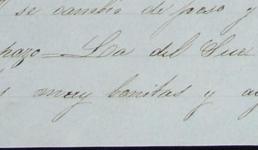 se cambia de peso y
pazo = La del Sur
s muy bonitas y ag